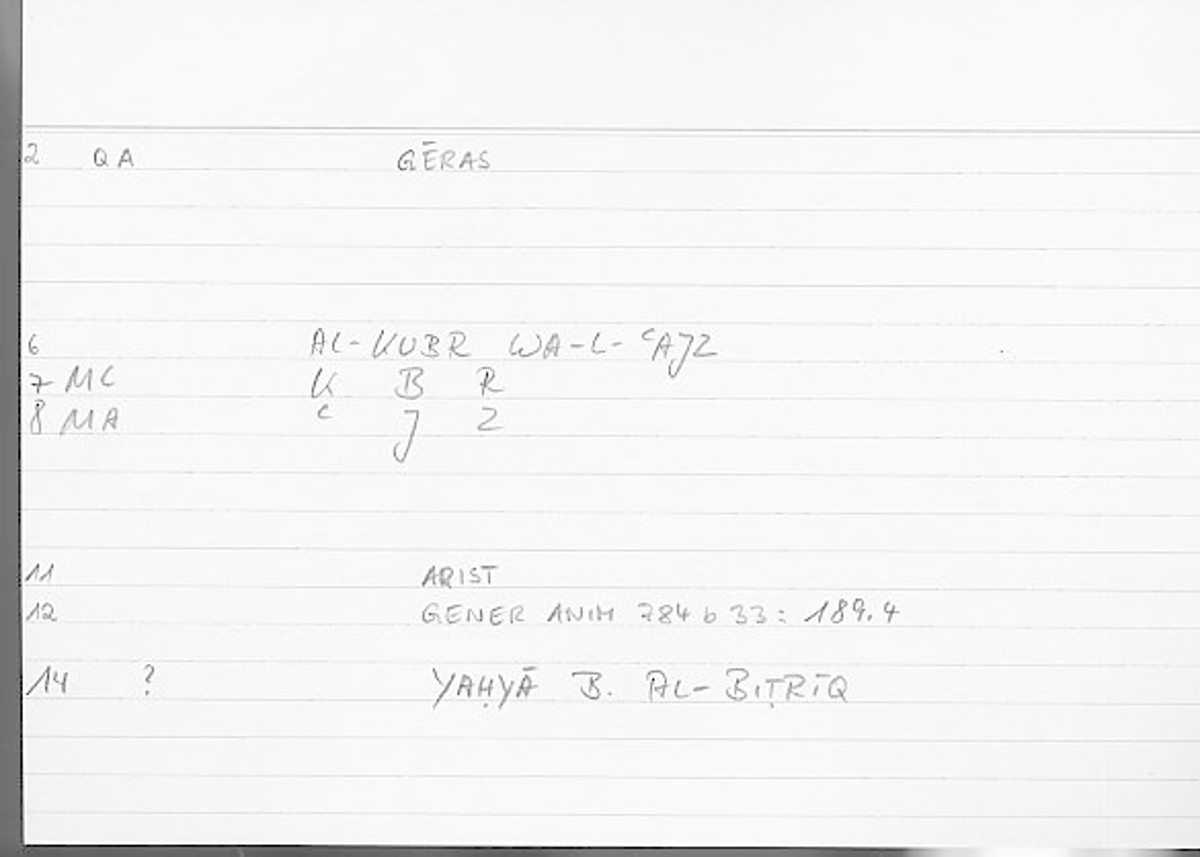 2 QA GĒRAS
6 AL-KUBR WA-L-ᶜAJZ
7 MC K B R
8 MA ᶜ J Z
11 ARIST
12 GENER ANIM 784 b 33 : 189.4
14 ? YAḤYĀ B. AL-BIṬRĪQ